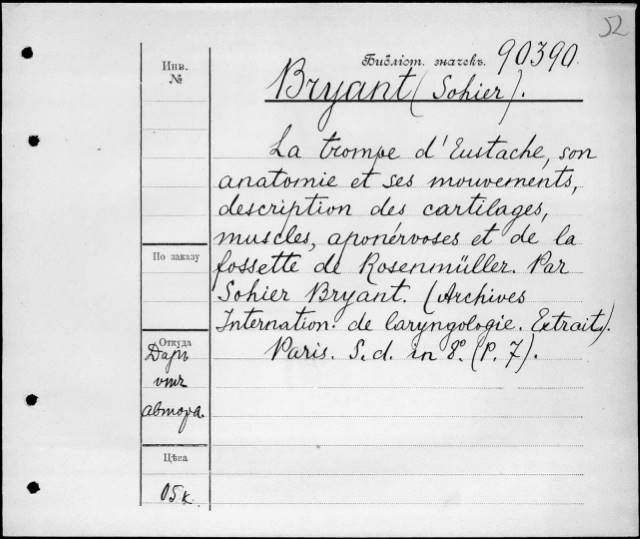 52
Библіот. значекъ. 90390.
Инв.
№
Bryant (Sohier).
La trompe d'Eustache, son
anatomie et ses mouvements,
description des cartilages,
muscles, aponérvoses et de la
fossette de Rosenmüller. Par
Sohier Bryant. (Archives
Internation. de laryngologie. Extrait).
Paris. S. d. in 8º. (P. 7).
По заказу
Откуда
Даръ
отъ
автора.
Цѣна
05 к.